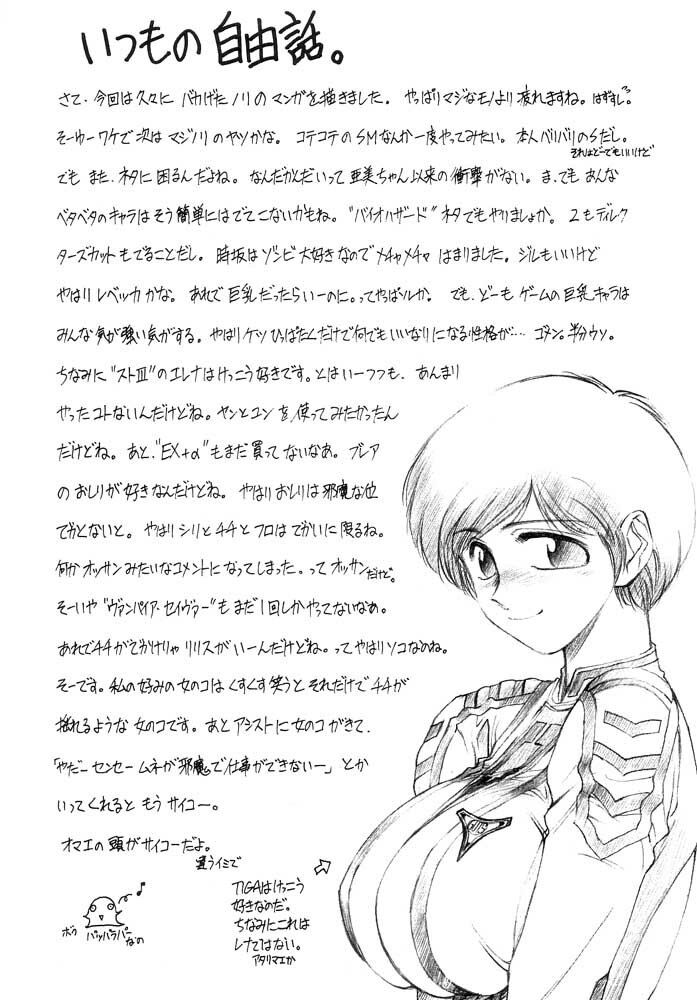 いつもの自由話。
さて、今回は久々に バカげたノリのマンガを描きました。やっぱりマジなモノより疲れますね。はずすし。
そーゆーワケで次はマジノリのヤツかな。コテコテのSMなんか一度やってみたい。本人バリバリのSだし。
それはどーでもいいけど
でも また、ネタに困るんだよね。なんだかんだいって亜美ちゃん以来の衝撃がない。ま、でも あんな
ベタベタのキャラはそう簡単にはでてこないかもね。"バイオハザード"ネタでもやりましょか。2もディレク
ターズカットもでることだし。時坂はゾンビ大好きなのでメチャメチャはまりました。ジルもいいけど
やはりレベッカかな。あれで巨乳だったらいーのに。ってやっぱソレか。でも、どーもゲームの巨乳キャラは
みんな気が強い気がする。やはりケツひっぱたくだけで何でもいいなりになる性格が… ゴメン。半分ウソ。
ちなみに"ストⅢ"のエレナはけっこう好きです。とはいーつつも、あんまり
やったコトないんだけどね。ヤンとユンを使ってみたかったん
だけどね。あと、"EX+α"もまだ買ってないなあ。ブレア
のおしりが好きなんだけどね。やはりおしりは邪魔な位
でかとないと。やはりシリとチチとフロはでかいに限るね。
何かオッサンみたいなコメントになってしまった。ってオッサンだけど。
そーいや"ヴァンパイア・セイヴァー"もまだ1回しかやってないなあ。
あれでチチがでかけりゃリリスがいーんだけどね。ってやはりソコなのね。
そーです。私の好みの女のコはくすくす笑うとそれだけでチチが
揺れるような女のコです。あとアシストに女のコがきて、
「やだー センセー ムネが邪魔で仕事ができないー」とか
いってくれると もうサイコー。
オマエの頭がサイコーだよ。
違うイミで
ボク パッパラパーなの
TIGAはけっこう
好きなのだ。
ちなみにこれは
レナではない。
アタリマエか